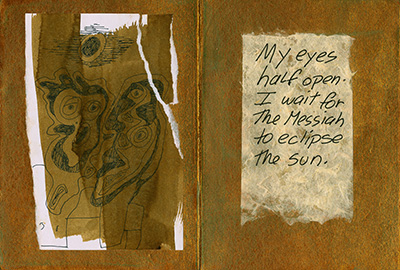 My eyes
half open.
I wait for
The Messiah
to eclipse
the sun.